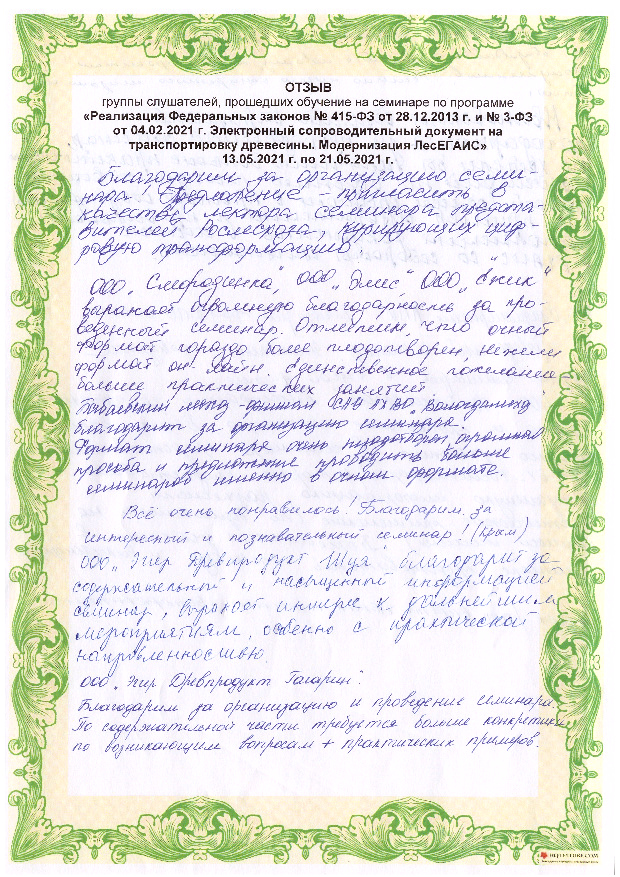 ОТЗЫВ
группы слушателей, прошедших обучение на семинаре по программе
«Реализация Федеральных законов № 415-ФЗ от 28.12.2013 г. и № 3-ФЗ
от 04.02.2021 г. Электронный сопроводительный документ на
транспортировку древесины. Модернизация ЛесЕГАИС»
13.05.2021 г. по 21.05.2021 г.
Благодарим за организацию семи-
нара. Предложение - пригласить в
качестве лектора семинара предста-
вителей Рослесхоза, курирующих циф-
ровую трансформацию.
ООО „Смородинка", ООО „Элис" ООО
выражает огромную благодарность за про-
веденный семинар. Отметим, что очный
формат гораздо более плодотворен, нежели
формат он-лайн. Единственное пожелание
больше практических занятий
Бабаевский САУ ЛХ ВО „Вологдалесхоз
благодарит за организацию семинара.
Формат семинара очень плодотворен, огромная
просьба и предложение проводить больше
семинаров именно в очном формате.
Всё очень понравилось! Благодарим за
интересный и познавательный семинар! (Крым)
ООО „Эгер Древпродукт Шуя" благодарит за
содержательный и насыщенный информацией
семинар, выражает интерес к дальнейшим
мероприятиям, особенно с практической
направленностью.
ООО „Эгер Древпродукт Гагарин".
Благодарим за организацию и проведение семинара.
По содержательной части требуется больше конкретики
по возникающим вопросам + практических примеров.